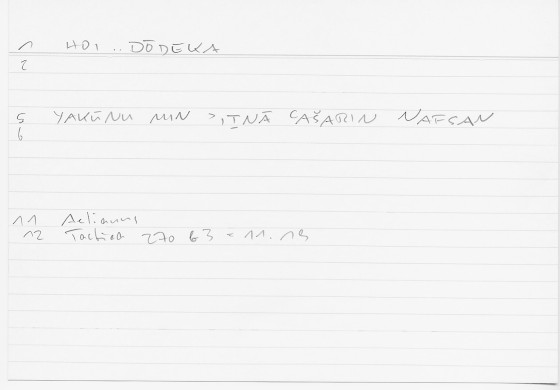 1 HOI .. DŌDEKA
2
5 YAKŪNU MIN ʾIṮNĀ ʿAŠARIN NAFSAN
6
11 Aelianus
12 Tactica 270 b3 = 11.13